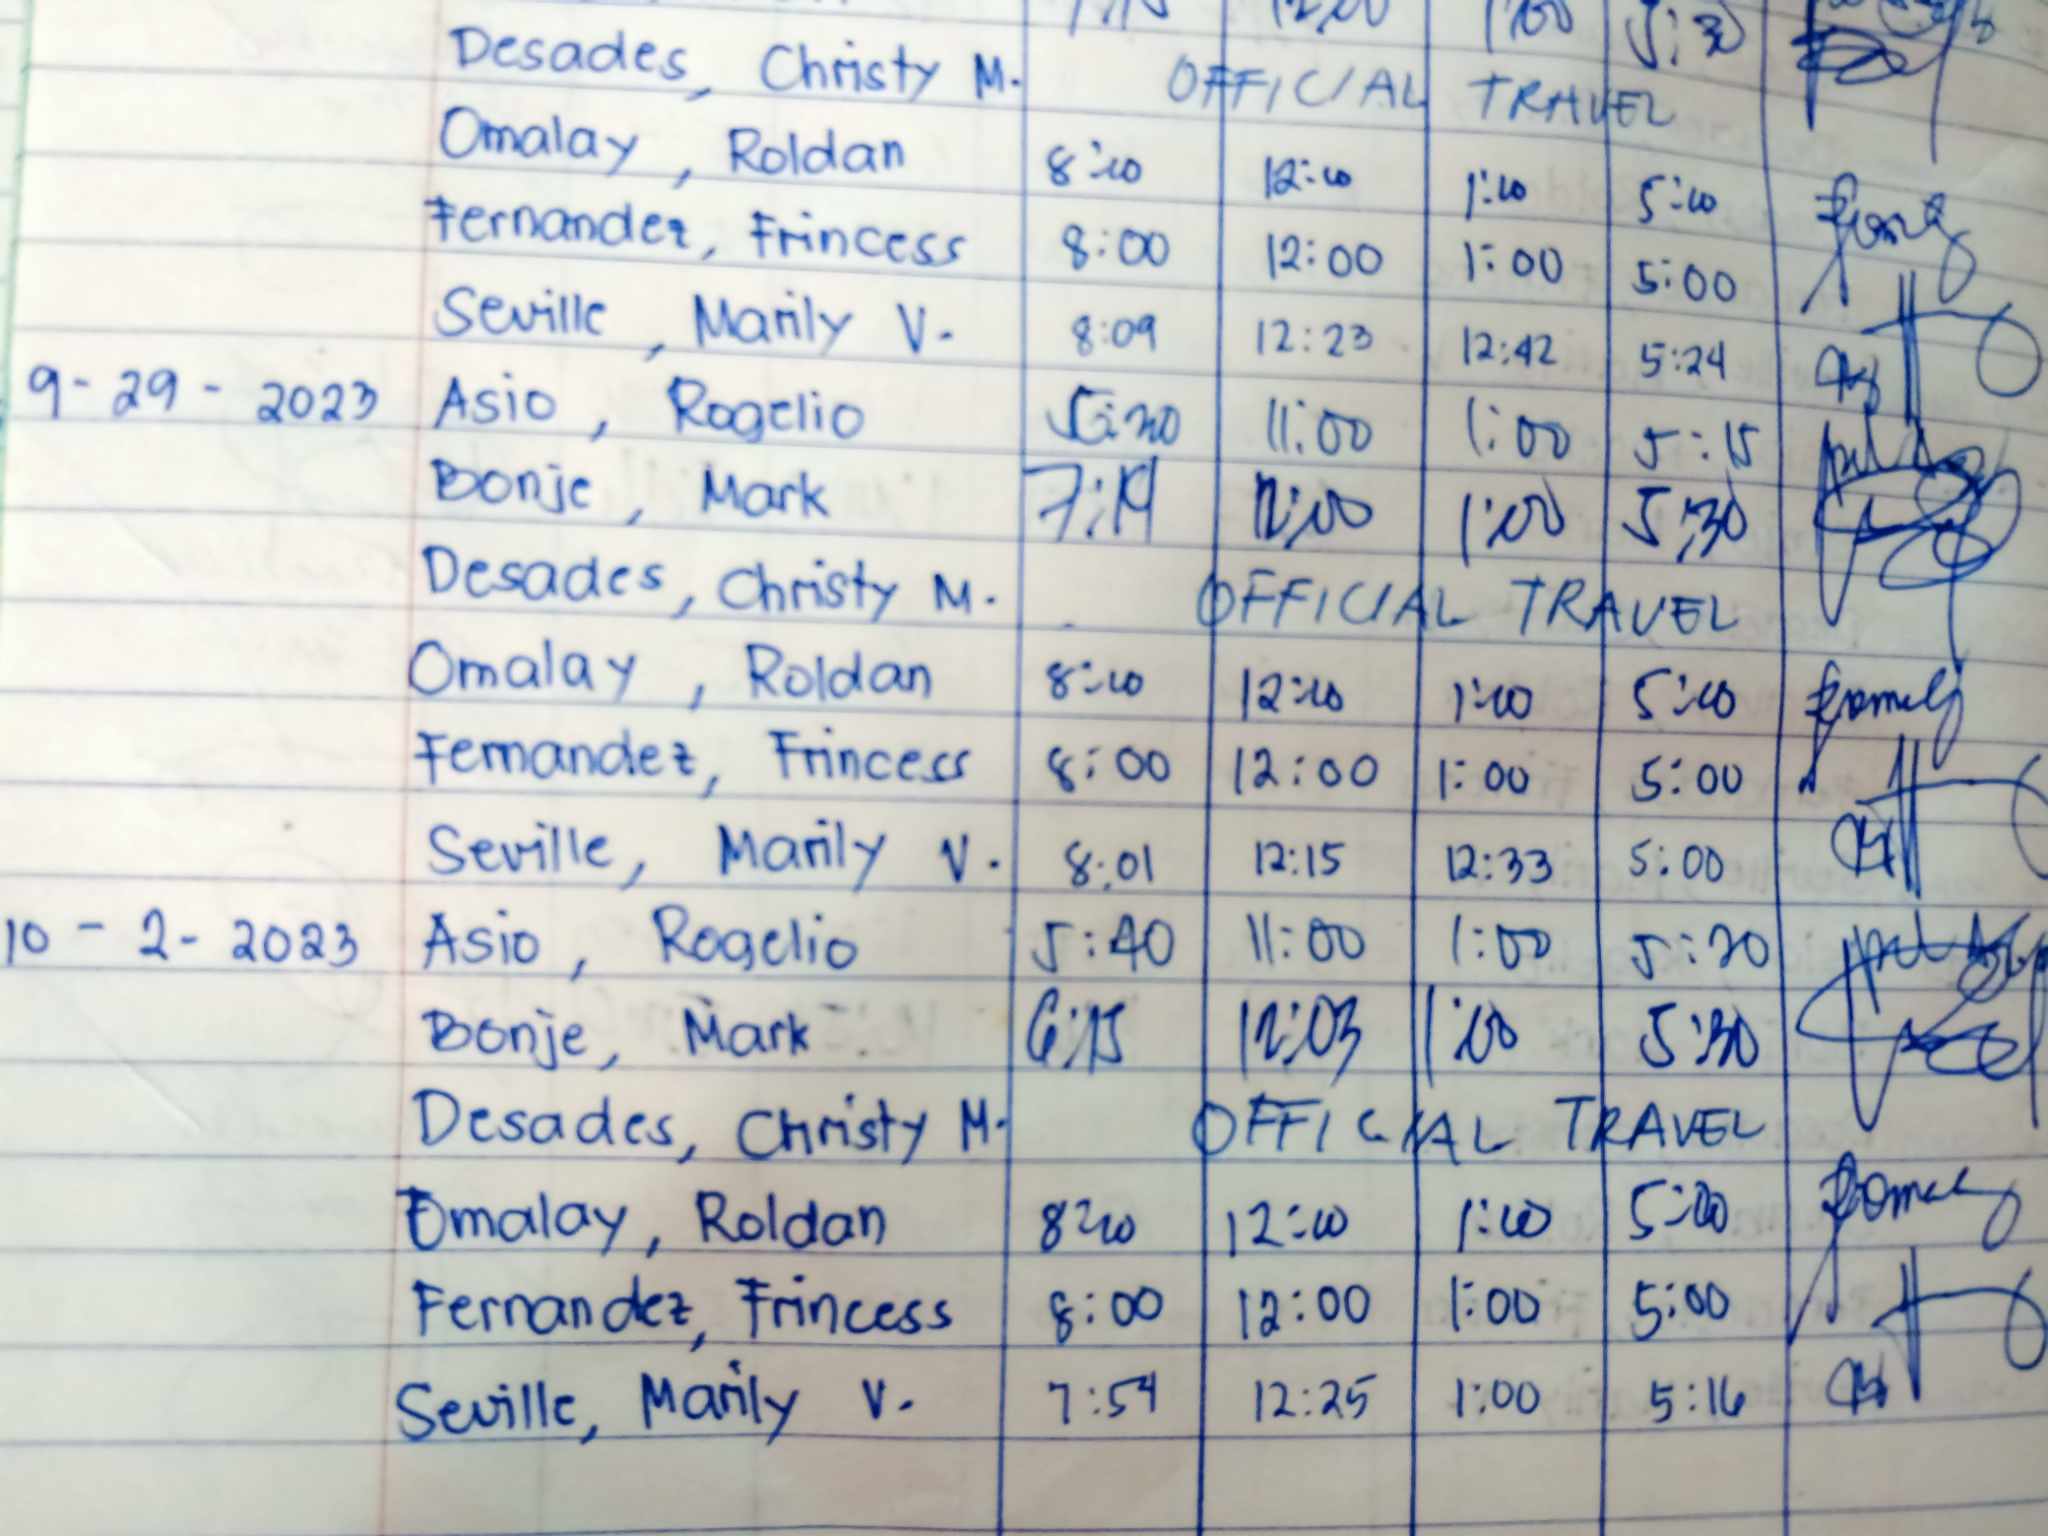 Desades, Christy M. OFFICIAL TRAVEL
Omalay, Roldan 8:00 12:00 1:00 5:00
Fernandez, Frincess 8:00 12:00 1:00 5:00
Seville, Marily V. 8:09 12:23 12:42 5:24
9-29-2023 Asio, Rogelio 11:00 1:00 5:15
Bonje, Mark 7:19 12:00 1:00 5:30
Desades, Christy M. OFFICIAL TRAVEL
Omalay, Roldan 8:00 12:00 1:00 5:00
Fernandez, Frincess 8:00 12:00 1:00 5:00
Seville, Marily V. 8:01 12:15 12:33 5:00
10-2-2023 Asio, Rogelio 5:40 11:00 1:00 5:20
Bonje, Mark 6:15 12:03 1:00 5:30
Desades, Christy M. OFFICIAL TRAVEL
Omalay, Roldan 8:00 12:00 1:00 5:00
Fernandez, Frincess 8:00 12:00 1:00 5:00
Seville, Marily V. 7:54 12:25 1:00 5:16